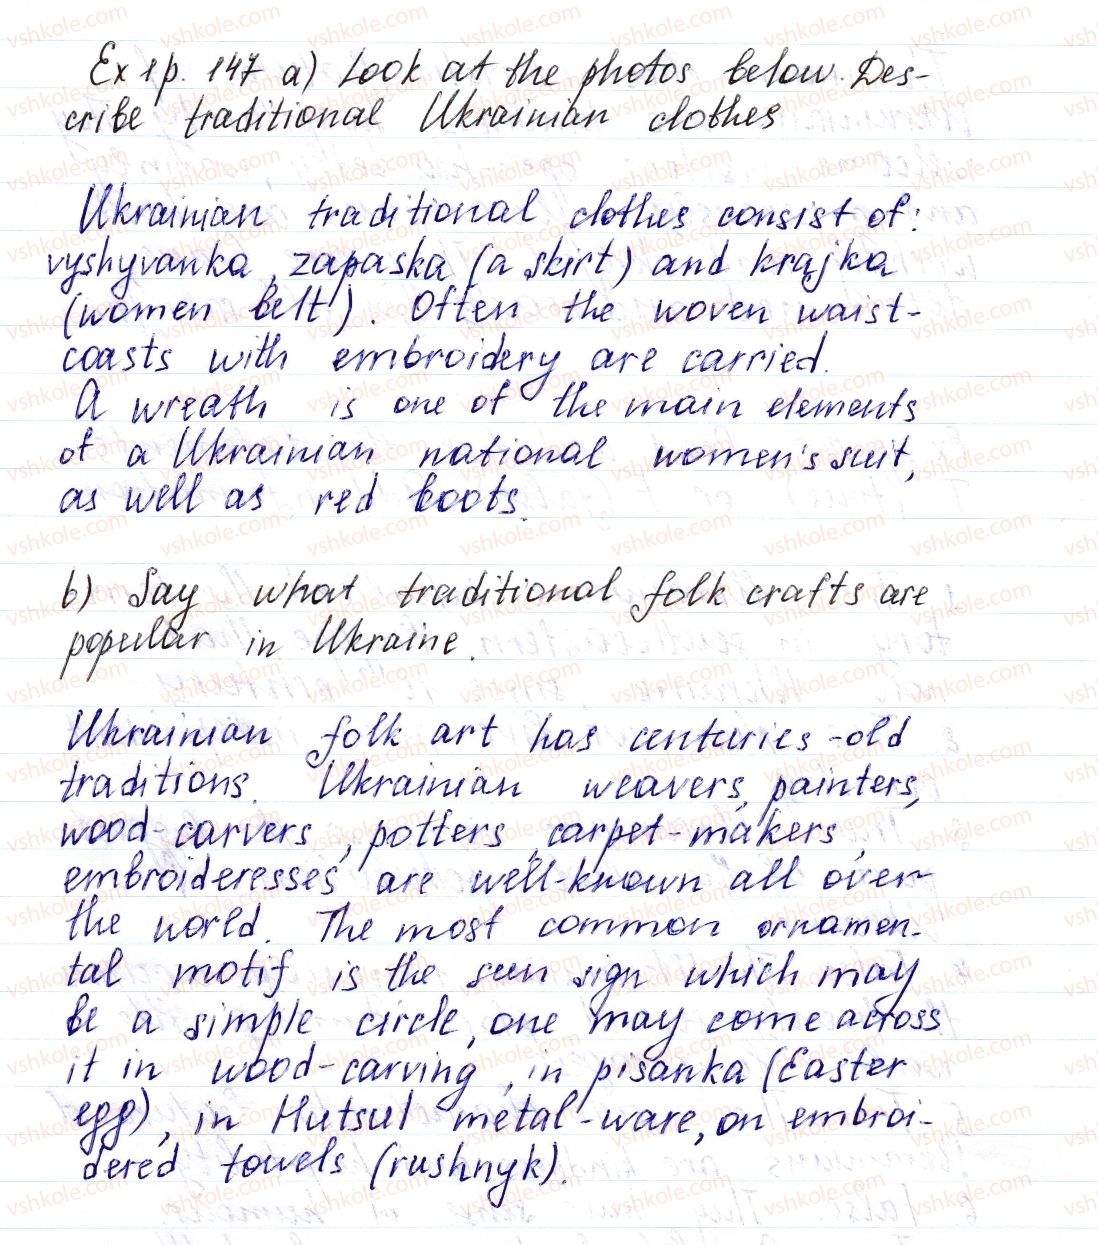 Ex 1 p. 147 a) Look at the photos below. Des-
cribe traditional Ukrainian clothes
Ukrainian traditional clothes consist of:
vyshyvanka, zapaska (a skirt) and krajka
(women belt). Often the woven waist-
coasts with embroidery are carried.
A wreath is one of the main elements
of a Ukrainian national women's suit,
as well as red boots.
b) Say what traditional folk crafts are
popular in Ukraine.
Ukrainian folk art has centuries-old
traditions. Ukrainian weavers, painters,
wood-carvers, potters, carpet-makers,
embroideresses are well-known all over
the world. The most common ornamen-
tal motif is the sun sign which may
be a simple circle, one may come across
it in wood-carving, in pisanka (Easter
egg), in Hutsul metal-ware, on embroi-
dered towels (rushnyk).